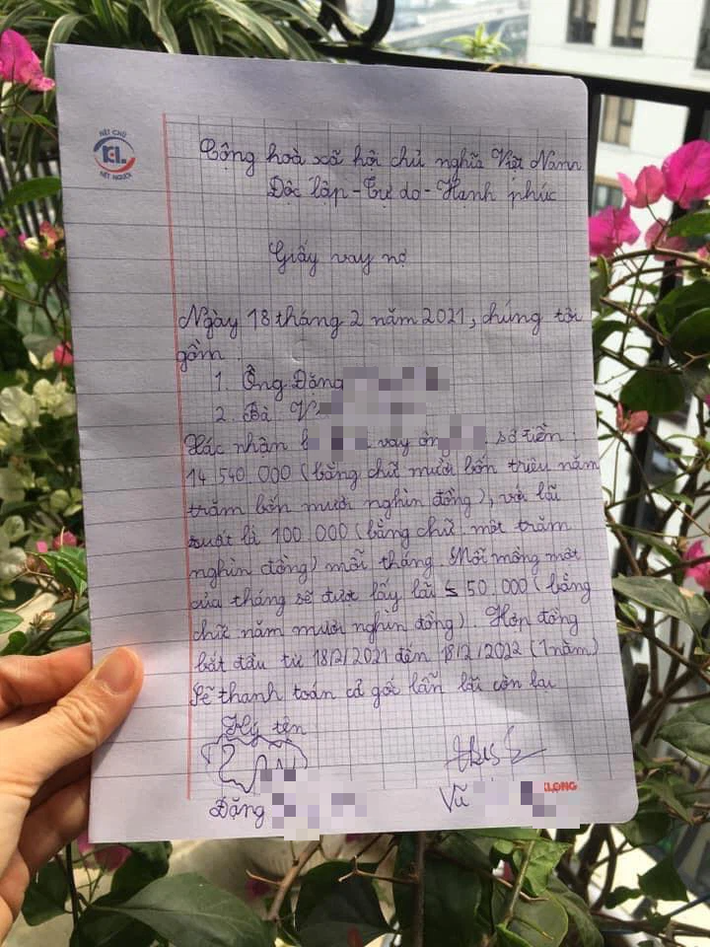 NÉT CHỮ
KL
NẾT NGƯỜI
Cộng hoà xã hội chủ nghĩa Việt Nam
Độc lập - Tự do - Hạnh phúc
Giấy vay nợ
Ngày 18 tháng 2 năm 2021, chúng tôi
gồm
1. Ông Đặng
2. Bà V
Xác nhận b vay ông số tiền
14 540.000 (bằng chữ mười bốn triệu năm
trăm bốn mươi nghìn đồng), với lãi
suất là 100.000 (bằng chữ một trăm
nghìn đồng) mỗi tháng. Mỗi mồng một
của tháng sẽ được lấy lãi 50.000 (bằng
chữ năm mươi nghìn đồng). Hợp đồng
bắt đầu từ 18/2/2021 đến 18/2/2022 (1 năm)
Sẽ thanh toán cả gốc lẫn lãi còn lại
Ký tên
KLONG
Đặng Vũ